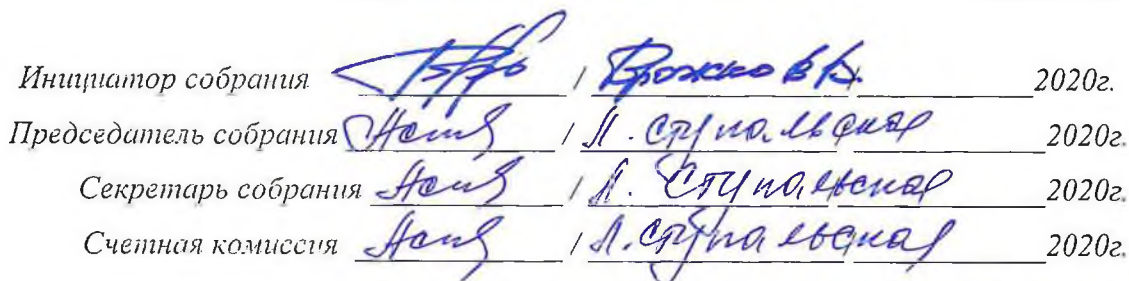 Инициатор собрания / Брожко В.В. 2020г.
Председатель собрания / Л. Ступальская 2020г.
Секретарь собрания / Л. Ступальская 2020г.
Счетная комиссия / Л. Ступальская 2020г.